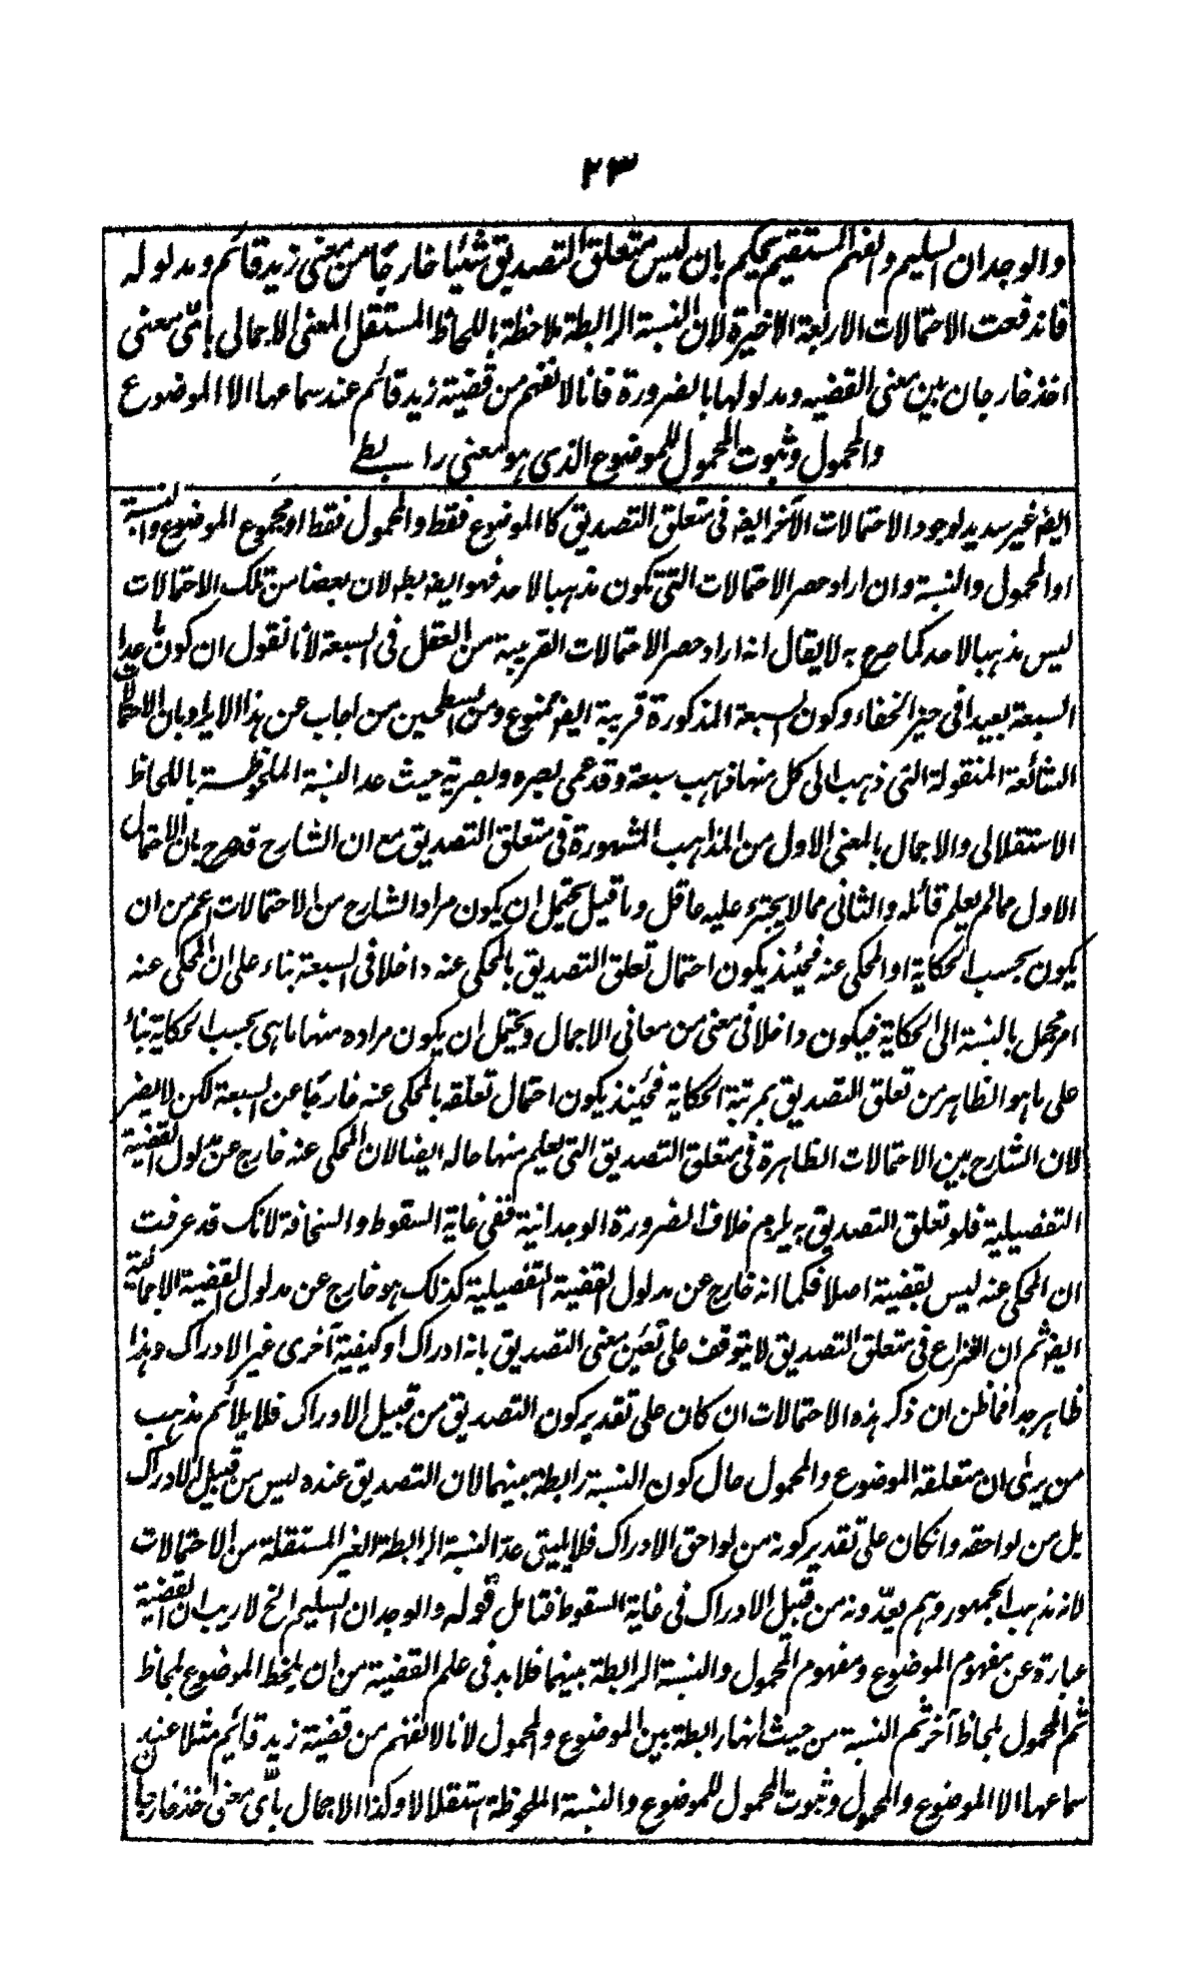 ٢٣
والوجدان السليم والفهم المستقيم يحكم بان ليس متعلق التصديق شيئا خارجا من معنى زيد قائم ومدلوله
فاندفعت الاحتمالات الاربعة الاخيرة لان النسبة الرابطة ملاحظة باللحاظ المستقل والمعنى الاجمالى باىّ معنى
اخذ خارجان عن معنى القضيه ومدلولها بالضرورة فانا لا نفهم من قضية زيد قائم عند سماعها الا الموضوع
والمحمول وثبوت المحمول للموضوع الذى هو معنى رابطے
ايضا غير سديد لوجود الاحتمالات الآخر ايضا فى متعلق التصديق كالموضوع فقط والمحمول فقط او مجموع الموضوع والنسبة
او المحمول والنسبة وان اراد حصر الاحتمالات التى تكون مذهبا لاحد فهو ايضا بط لان بعضا من تلك الاحتمالات
ليس مذهبا لاحد كما صرح به لا يقال انه اراد حصر الاحتمالات القريبة من العقل فى السبعة لانا نقول ان كون ما عدا
السبعة بعيدا فى حيز الخفاء وكون السبعة المذكورة قريبة ايضا ممنوع ومن السطحيين من اجاب عن هذا الايراد بان الاحتمالات
الشائعة المنقولة التى ذهب الى كل منها ذاهب سبعة وقد عمى بصره وبصيرته حيث عد النسبة الملحوظـة باللحاظ
الاستقلالى والاجمال بالمعنى الاول من المذاهب المشهورة فى متعلق التصديق مع ان الشارح قد صرح بان الاحتمال
الاول مما لم يعلم قائله والثانى مما لا يجترء عليه عاقل وما قيل يحتمل ان يكون مراد الشارح من الاحتمالات اعم من ان
يكون بحسب الحكاية او المحكى عنه فحينئذ يكون احتمال تعلق التصديق بالمحكى عنه داخلا فى السبعة بناء على ان المحكى عنه
امر مجمل بالنسبة الى الحكاية فيكون داخلا فى معنى من معانى الاجمال ويحتمل ان يكون مراده منها ما هى بحسب الحكاية بناءً
على ما هو الظاهر من تعلق التصديق بمرتبة الحكاية فحينئذ يكون احتمال تعلقه بالمحكى عنه خارجا عن السبعة لكن لا يضر
لان الشارح بين الاحتمالات الظاهرة فى متعلق التصديق التى يعلم منها حاله ايضا لان المحكى عنه خارج عن مدلول القضية
التفصيلية فلو تعلق التصديق به يلزم خلاف الضرورة الوجدانية ففى غاية السقوط والسخافة لانك قد عرفت
ان المحكى عنه ليس بقضية اصلا فكما انه خارج عن مدلول القضية التفصيلية كذلك هو خارج عن مدلول القضية الاجمالية
ايضا ثم ان النزاع فى متعلق التصديق لا يتوقف على تعين معنى التصديق بانه ادراك او كيفية آخرى غير الادراك وهذا
ظاهر جدا فما ظن ان ذكر هذه الاحتمالات ان كان على تقدير كون التصديق من قبيل الادراك فلا يلائم مذهب
من يرى ان متعلقه الموضوع والمحمول حال كون النسبة رابطة بينهما لان التصديق عنده ليس من قبيل الادراك
بل من لواحقه وانكان على تقدير كونه من لواحق الادراك فلا يليق عدّ النسبة الرابطة الغير المستقلة من الاحتمالات
لانه مذهب الجمهور وهم يعدّونه من قبيل الادراك فى غاية السقوط فتامل قوله والوجدان السليم الخ لا ريب ان القضية
عبارة عن مفهوم الموضوع ومفهوم المحمول والنسبة الرابطة بينهما فلا بد فى علم القضية من ان يلحظ الموضوع بلحاظ
ثم المحمول بلحاظ آخر ثم النسبة من حيث انها رابطة بين الموضوع والمحمول لانا لا نفهم من قضية زيد قائم مثلا عند
سماعها الا الموضوع والمحمول وثبوت المحمول للموضوع والنسبة الملحوظة استقلالا وكذا الاجمال باىّ معنى اخذ خارجان